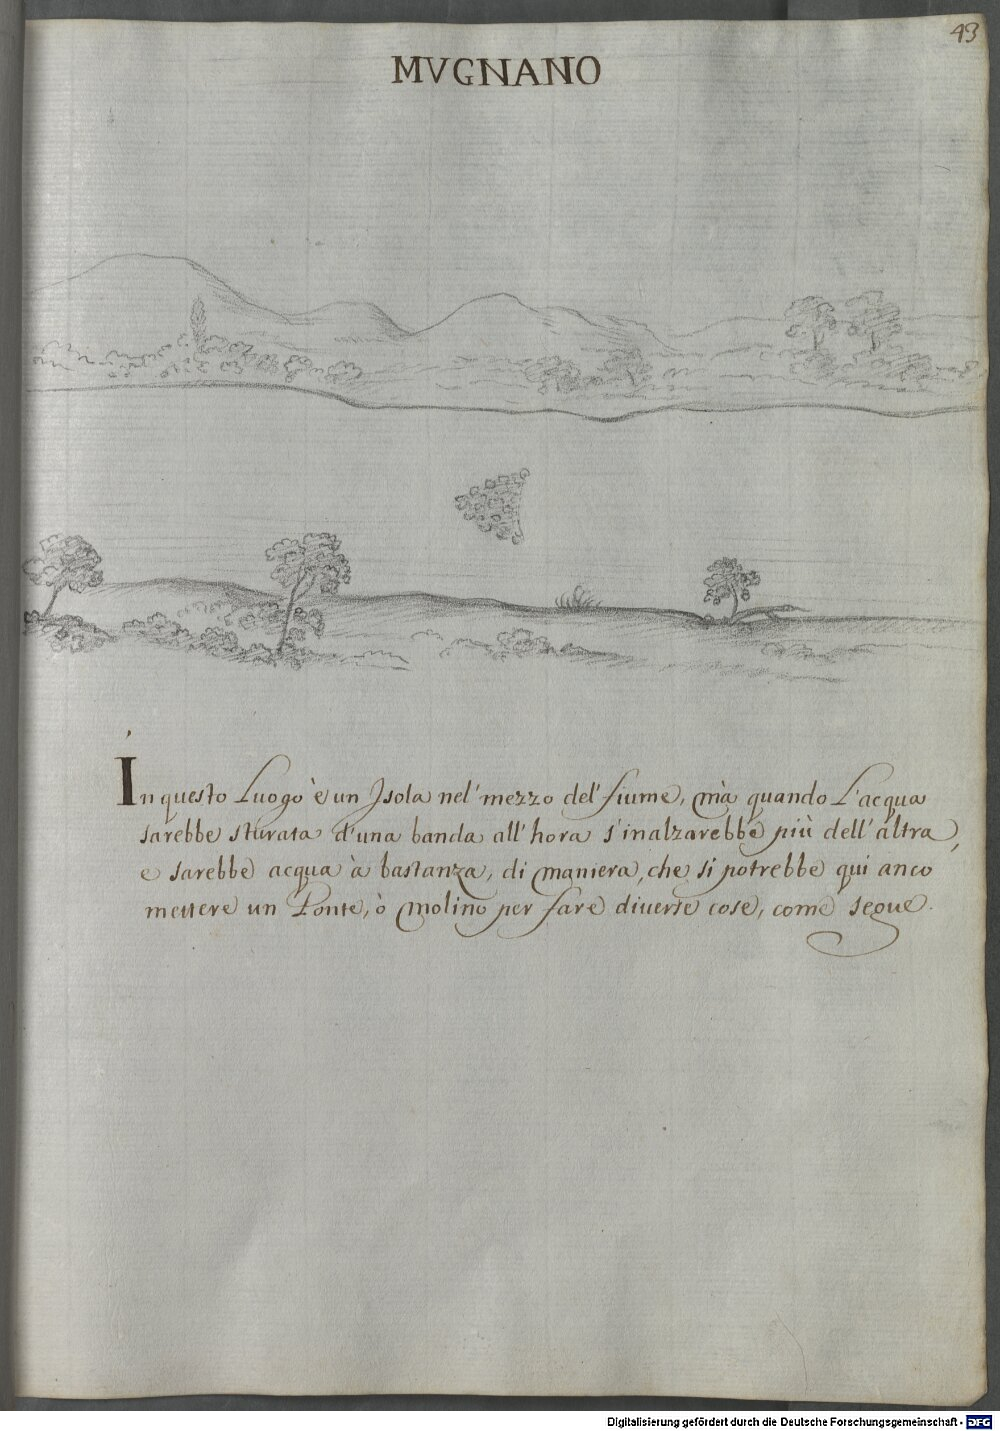 43
MVGNANO
In questo Luogo è un Isola nel' mezzo del' fiume, mà quando L'acqua
sarebbe sturata d'una banda all'hora s'inalzarebbe più dell'altra,
e sarebbe acqua à bastanza, di maniera, che si potrebbe qui anco
mettere un Ponte, ò Molino per fare diverse cose, come segue.
Digitalisierung gefördert durch die Deutsche Forschungsgemeinschaft - DFG